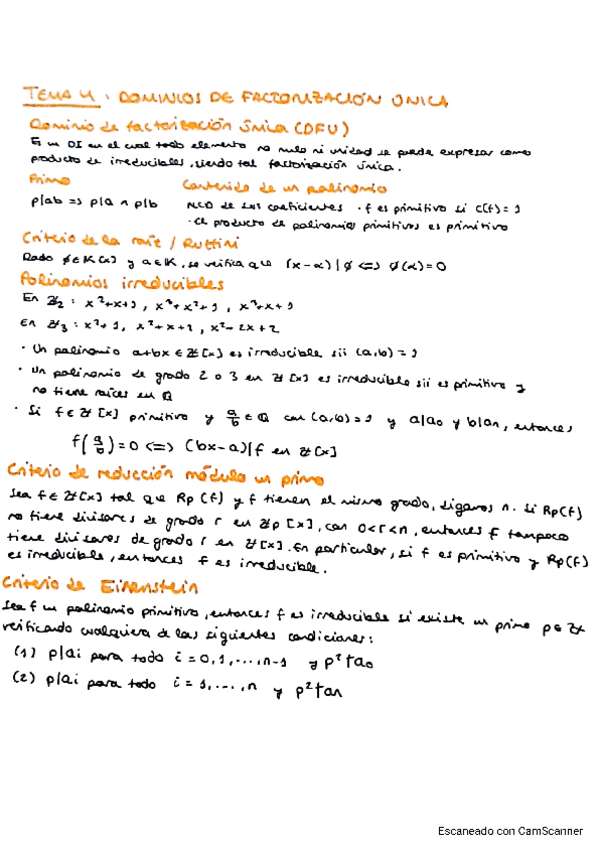 TEMA 4. DOMINIOS DE FACTORIZACIÓN ÚNICA
Dominio de factorización única (DFU)
Es un DI en el cual todo elemento no nulo ni unidad se puede expresar como
producto de irreducibles, siendo tal factorización única.
Primo
p|ab => p|a ∧ p|b
Contenido de un polinomio
MCD de sus coeficientes · f es primitivo si c(f)=1
· El producto de polinomios primitivos es primitivo
Criterio de la raíz / Ruffini
Dado ϕ∈K[x] y α∈K, se verifica que (x-α)|ϕ <=> ϕ(α)=0
Polinomios irreducibles
En ℤ₂: x²+x+1, x³+x²+1, x³+x+1
En ℤ₃: x²+1, x²+x+2, x²-2x+2
· Un polinomio a+bx∈ℤ[x] es irreducible sii (a,b)=1
· Un polinomio de grado 2 o 3 en ℤ[x] es irreducible sii es primitivo y
no tiene raíces en ℚ
· Si f∈ℤ[x] primitivo y a/b∈ℚ con (a,b)=1 y a|a₀ y b|aₙ, entonces
f(a/b)=0 <=> (bx-a)|f en ℤ[x]
Criterio de reducción módulo un primo
Sea f∈ℤ[x] tal que Rp(f) y f tienen el mismo grado, digamos n. Si Rp(f)
no tiene divisores de grado r en ℤp[x], con 0<r<n, entonces f tampoco
tiene divisores de grado r en ℤ[x]. En particular, si f es primitivo y Rp(f)
es irreducible, entonces f es irreducible.
Criterio de Eisenstein
Sea f un polinomio primitivo, entonces f es irreducible si existe un primo p∈ℤ
verificando cualquiera de las siguientes condiciones:
(1) p|ai para todo i=0,1,...,n-1 y p²∤a₀
(2) p|ai para todo i=1,...,n y p²∤an
Escaneado con CamScanner